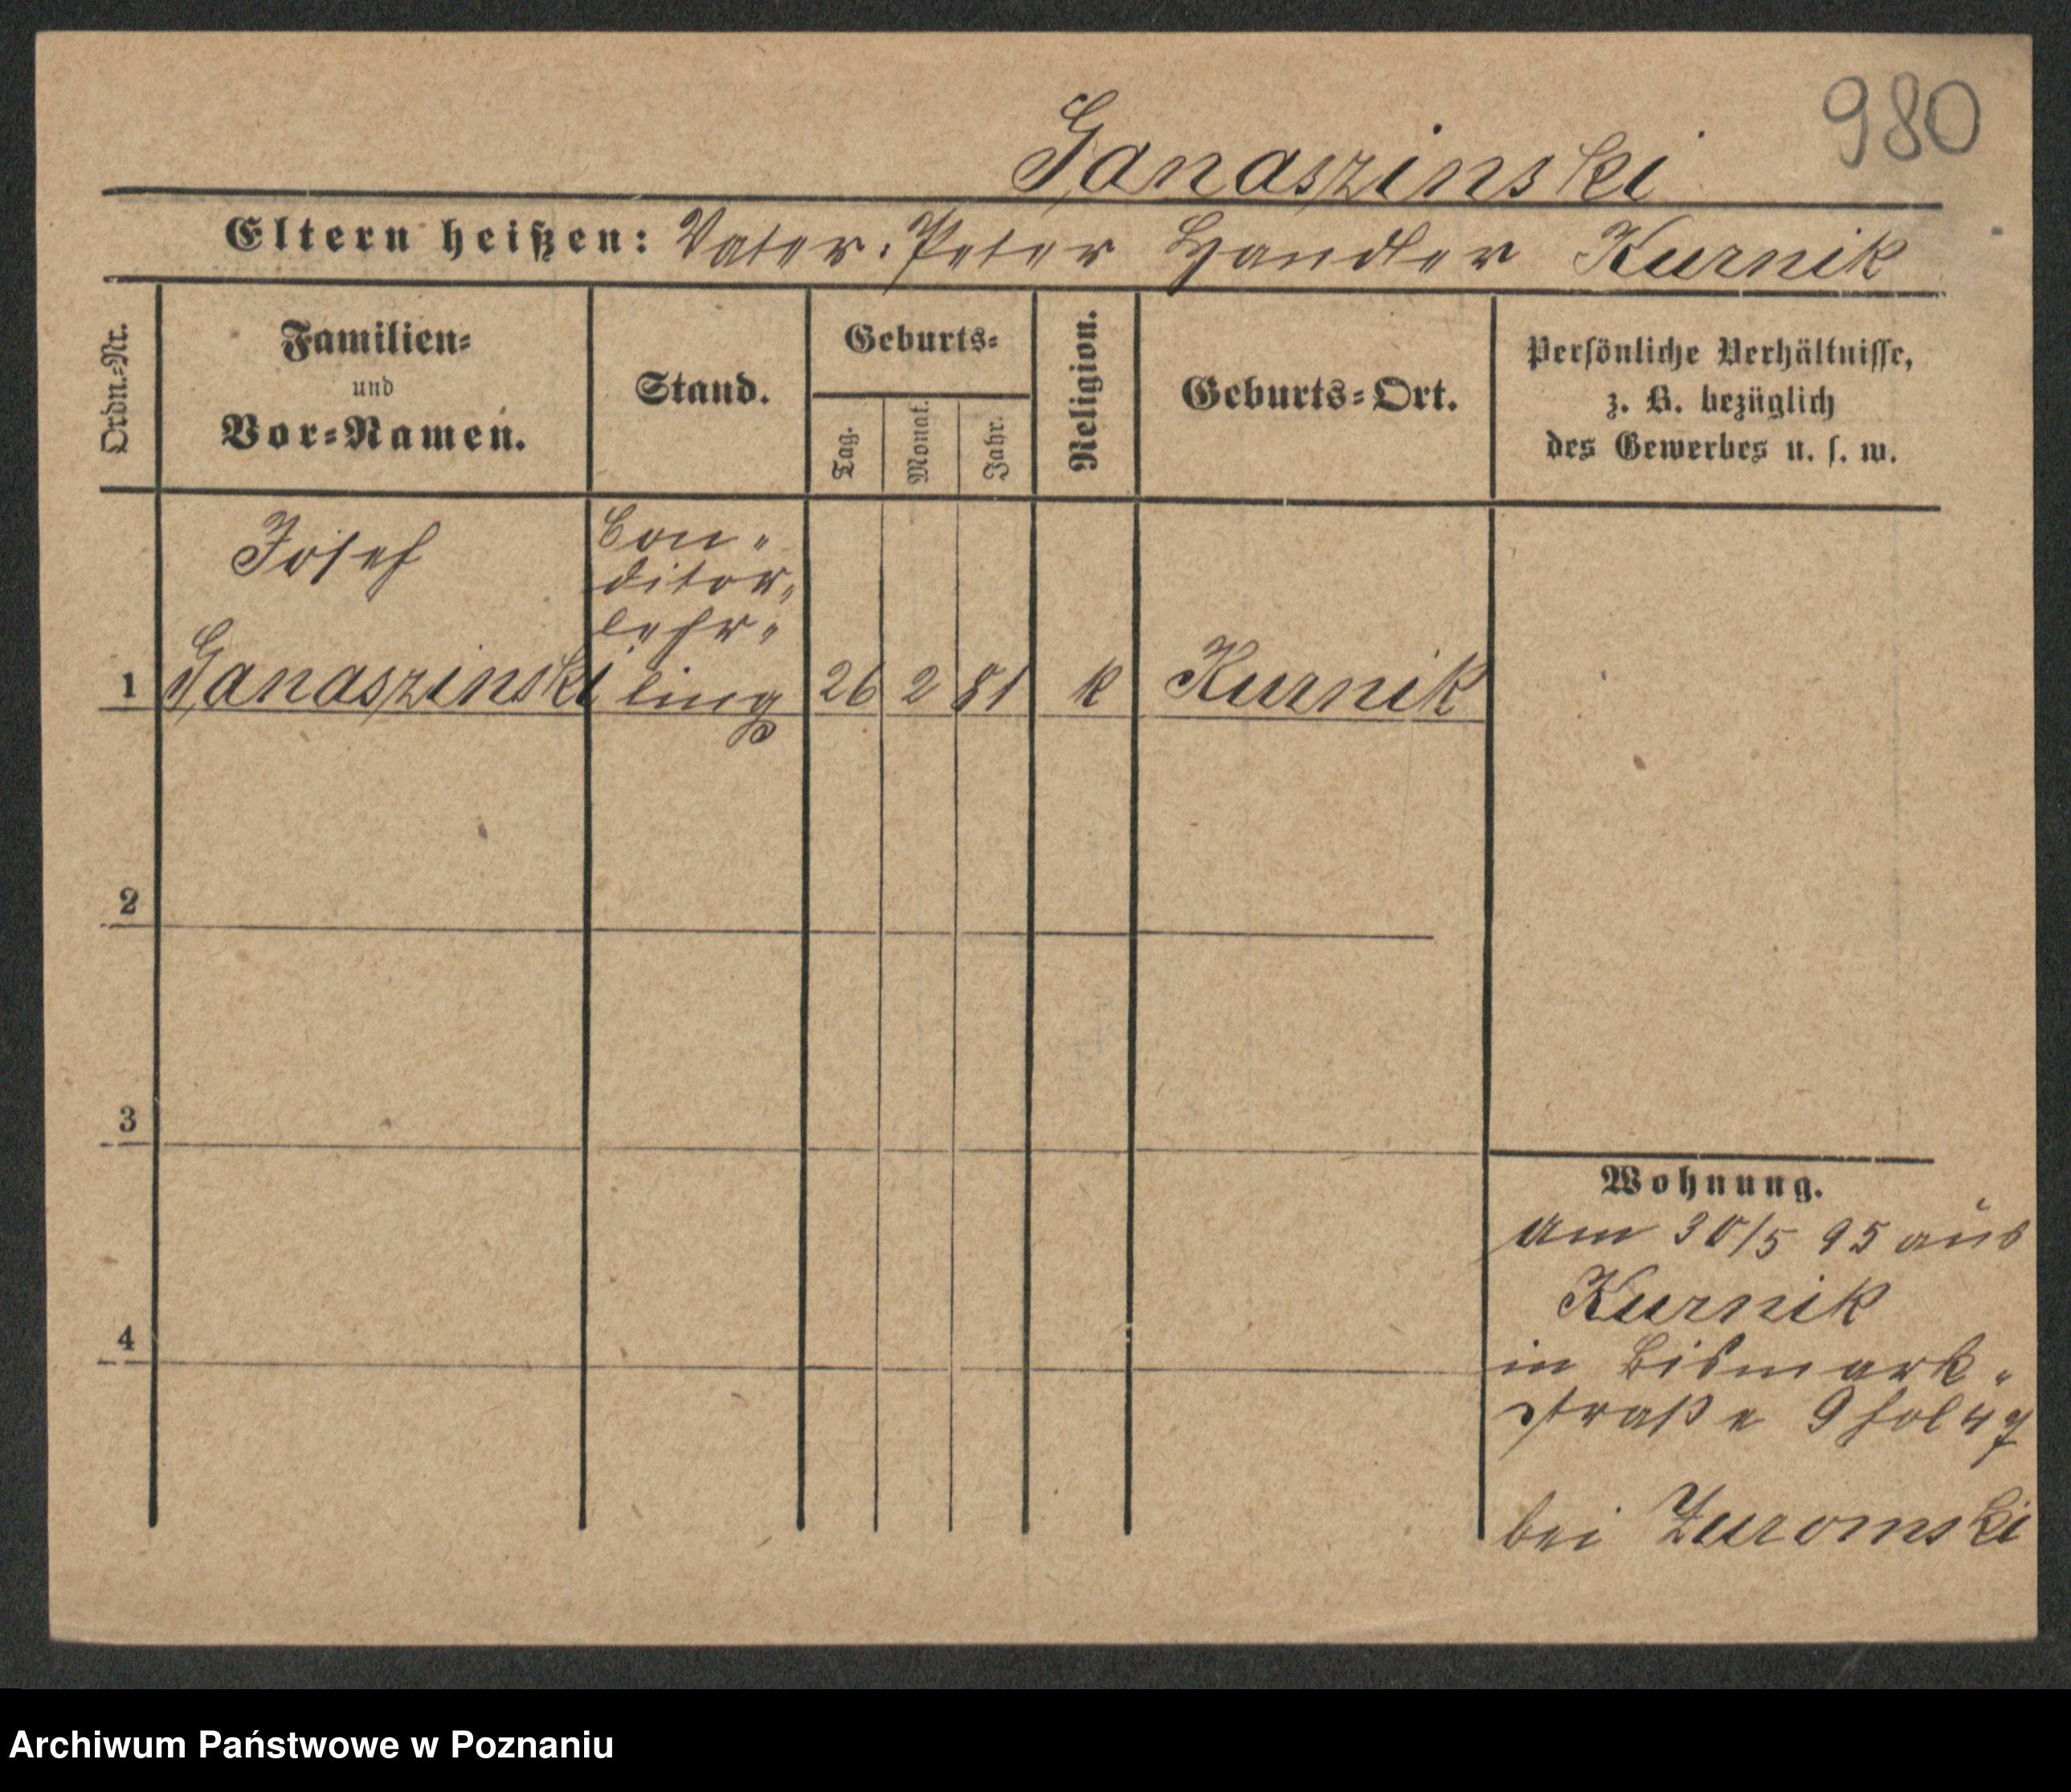 980
Ganaszinski
Eltern heißen: Vater. Peter Handler Kurnik
Ordn.-Nr.
Familien-
und
Vor-Namen.
Stand.
Geburts-
Tag.
Monat.
Jahr.
Religion.
Geburts-Ort.
Persönliche Verhältnisse,
z. B. bezüglich
des Gewerbes u. s. w.
Josef
Con-
ditor-
lehr-
1 Ganaszinski ling 26 2 81 k Kurnik
2
3
4
Wohnung.
am 30/5 95 aus
Kurnik
in Bismark-
straße 9 fol 47
bei Zuromski
Archiwum Państwowe w Poznaniu